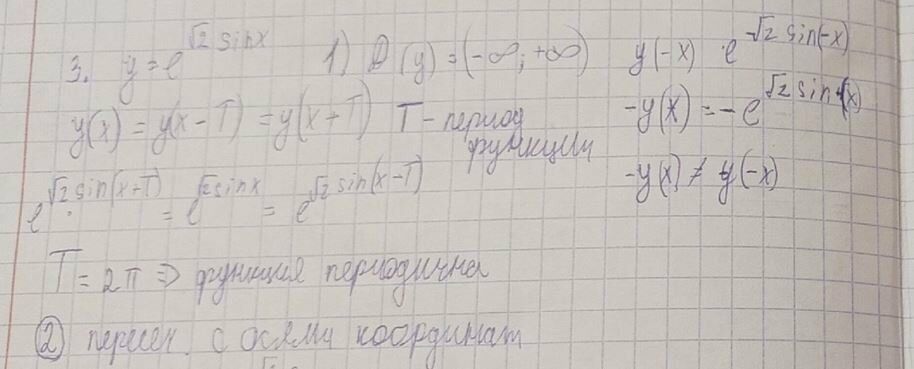 3. y = e^{√2 sinx} 1) D(y) = (-∞; +∞) y(-x) e^{√2 sin(-x)}
y(x) = y(x-T) = y(x+T) T - период функции -y(x) = -e^{√2 sin(x)}
e^{√2 sin(x+T)} = e^{√2 sinx} = e^{√2 sin(x-T)} -y(x) ≠ y(-x)
T = 2π ⇒ функция периодична
② пересеч. с осями координат